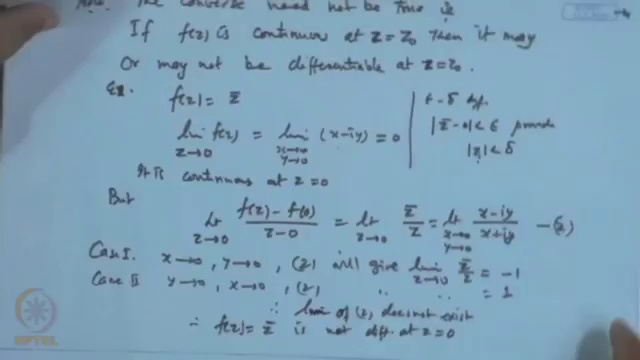 The converse need not be true ie
If f(z) is continuous at z=z₀ then it may
Or may not be differentiable at z=z₀.
Ex. f(z) = z̄
lim f(z) = lim (x-iy) = 0
z→0 x→0 y→0
ε-δ def.
|z̄-0|<ε provide
|z|<δ
It is continuous at z=0
But
lt f(z)-f(0) / z-0 = lt z̄/z = lt x-iy / x+iy —(2)
z→0 z→0 x→0 y→0
Case I. x→0, y→0, (2) will give lim z̄/z = -1
z→0
Case II y→0, x→0, (2) " " = 1
∴ lim of (2) does not exist
∴ f(z) = z̄ is not diff. at z=0
NPTEL